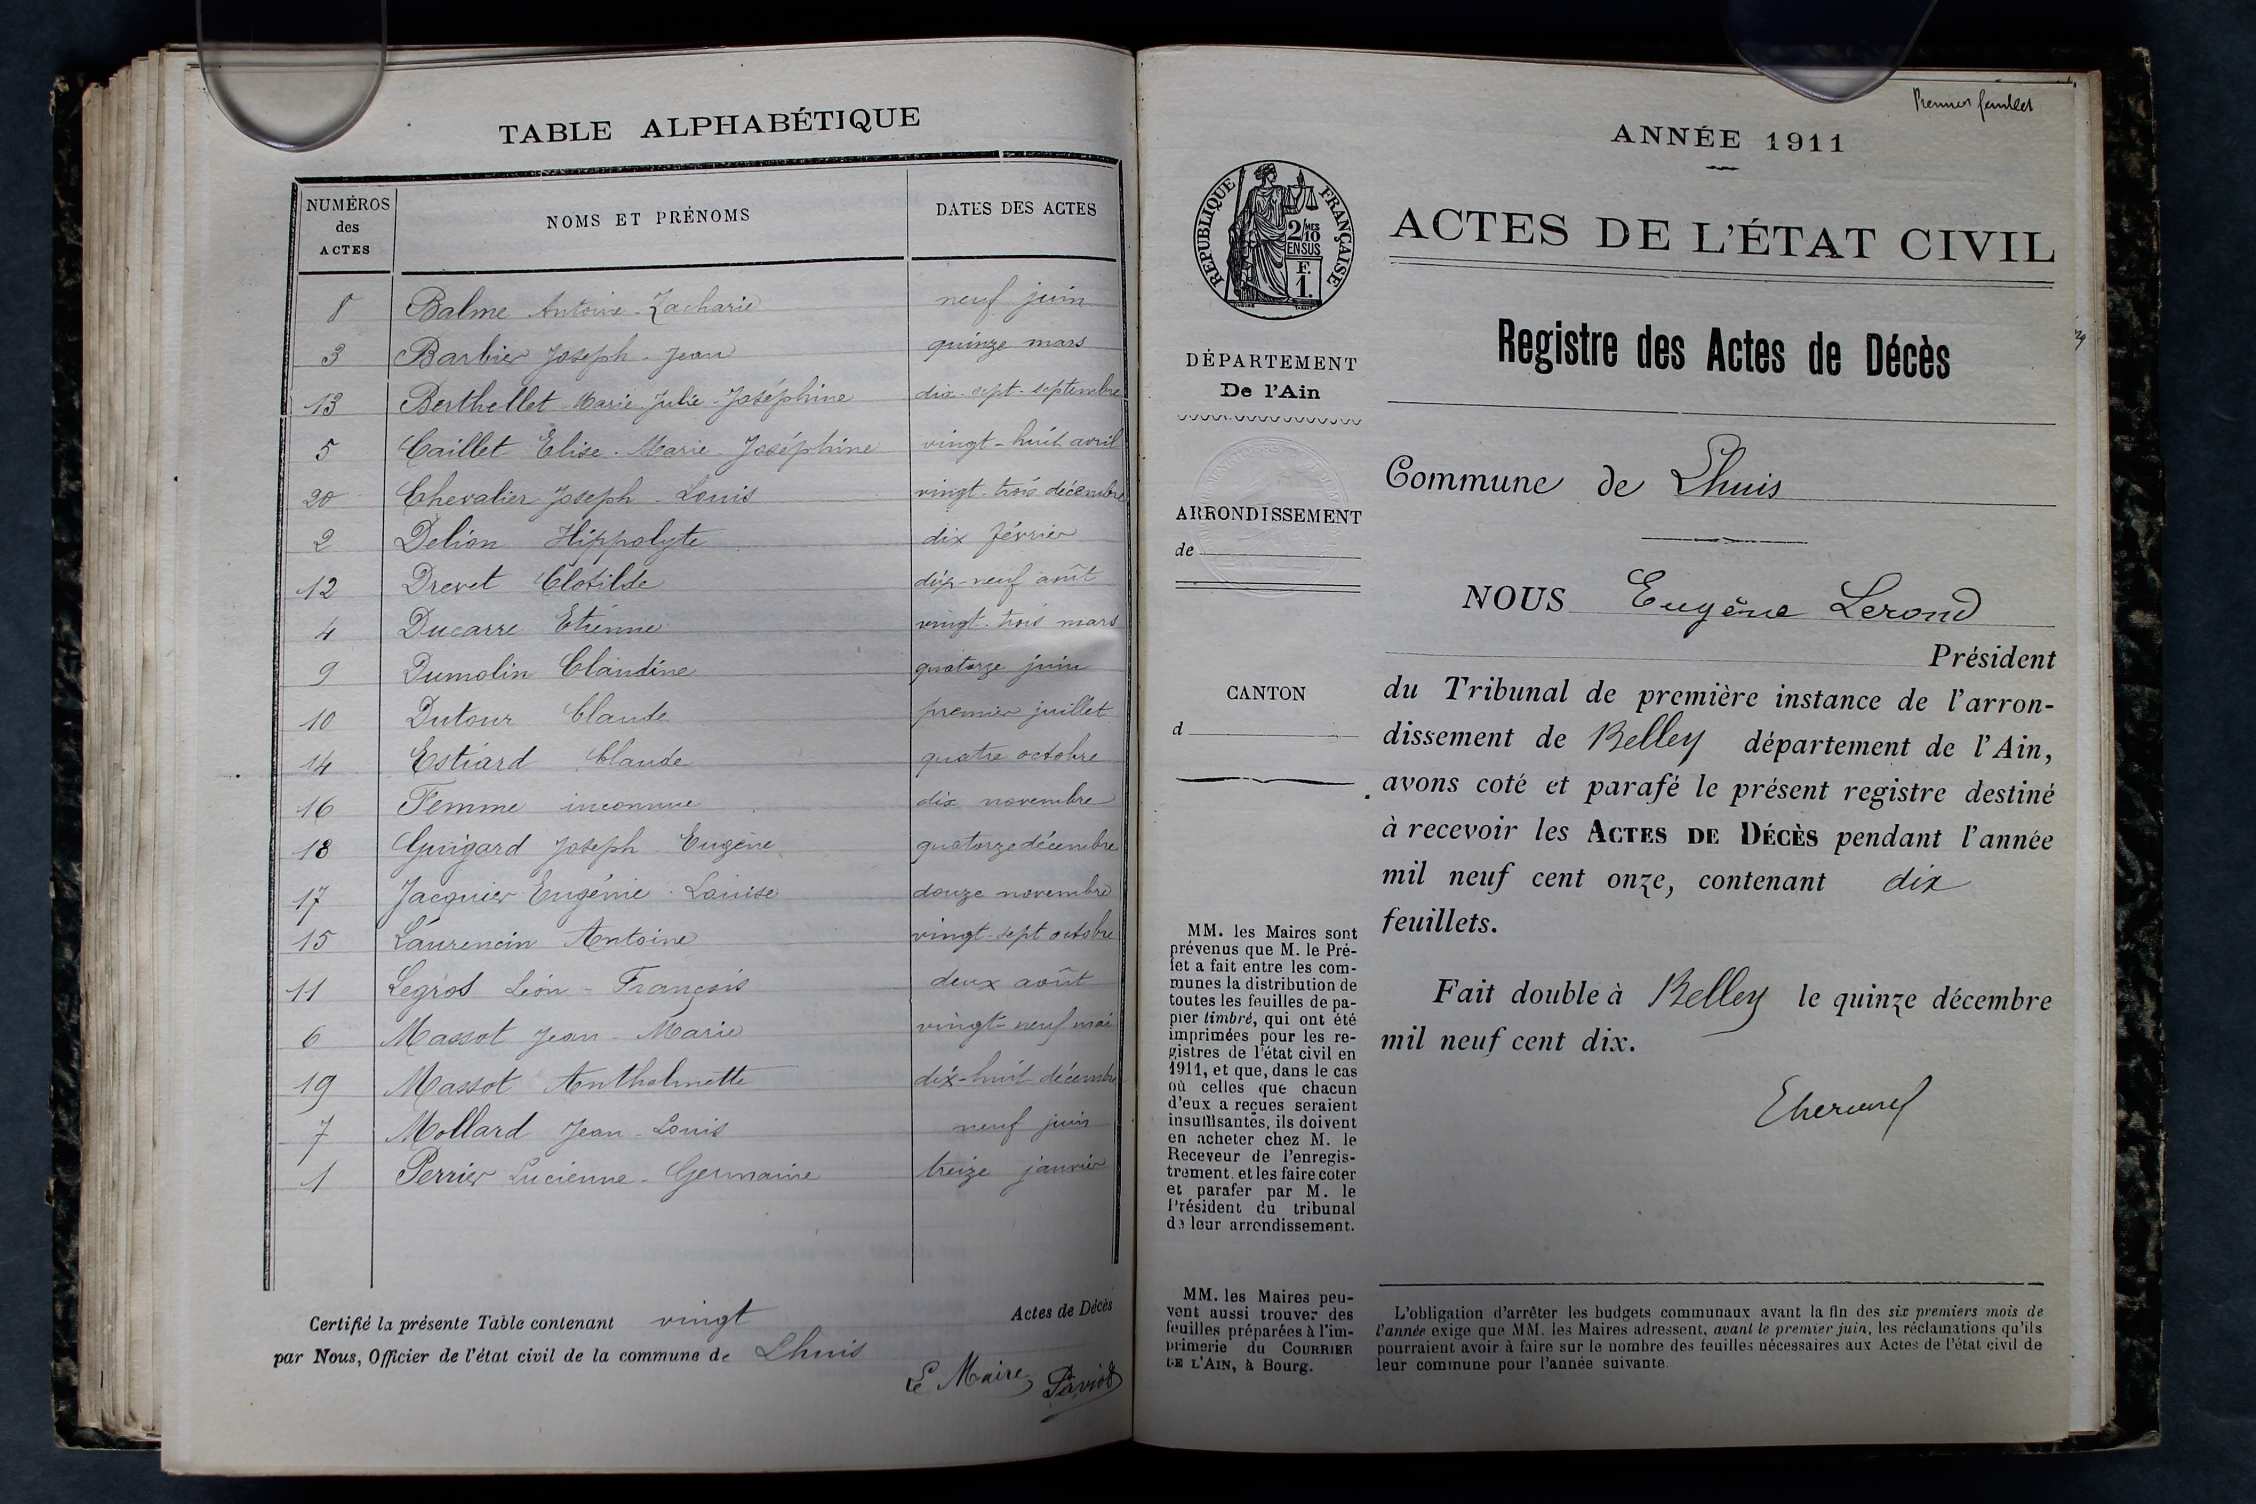 TABLE ALPHABÉTIQUE
NUMÉROS des ACTES
NOMS ET PRÉNOMS
DATES DES ACTES
8 Balme Antoine - Zacharie neuf juin
3 Barbier Joseph - Jean quinze mars
13 Berthellet Marie - Julie - Joséphine dix-sept-septembre
5 Caillet Elise - Marie - Joséphine vingt-huit avril
20 Chevalier Joseph - Louis vingt-trois décembre
2 Delion Hippolyte dix février
12 Drevet Clotilde dix-neuf août
4 Ducarre Etienne vingt-trois mars
9 Dumolin Claudine quatorze juin
10 Dutour Claude premier juillet
14 Estiard Claude quatre octobre
16 Femme inconnue dix novembre
18 Guigard Joseph Eugène quatorze décembre
17 Jacquier Eugénie - Louise douze novembre
15 Laurencin Antoine vingt-sept octobre
11 Legros Léon - François deux août
6 Massot Jean - Marie vingt-neuf mai
19 Massot Anthelmette dix-huit décembre
7 Mollard Jean - Louis neuf juin
1 Perrier Lucienne - Germaine treize janvier
Certifié la présente Table contenant vingt Actes de Décès
par Nous, Officier de l'état civil de la commune de Lhuis
Le Maire
Premier feuillet
ANNÉE 1911
RÉPUBLIQUE FRANÇAISE
2/MES 10
EN SUS
F.
1.
ACTES DE L'ÉTAT CIVIL
DÉPARTEMENT
De l'Ain
ARRONDISSEMENT
de
CANTON
d
MM. les Maires sont
prévenus que M. le Pré-
fet a fait entre les com-
munes la distribution de
toutes les feuilles de pa-
pier timbré, qui ont été
imprimées pour les re-
gistres de l'état civil en
1911, et que, dans le cas
où celles que chacun
d'eux a reçues seraient
insuffisantes, ils doivent
en acheter chez M. le
Receveur de l'enregis-
trement, et les faire coter
et parafer par M. le
Président du tribunal
de leur arrondissement.
MM. les Maires peu-
vent aussi trouver des
feuilles préparées à l'im-
primerie du COURRIER
DE L'AIN, à Bourg.
Registre des Actes de Décès
Commune de Lhuis
NOUS Eugène Lerond
Président
du Tribunal de première instance de l'arron-
dissement de Belley département de l'Ain,
avons coté et parafé le présent registre destiné
à recevoir les ACTES DE DÉCÈS pendant l'année
mil neuf cent onze, contenant dix
feuillets.
Fait double à Belley le quinze décembre
mil neuf cent dix.
L'obligation d'arrêter les budgets communaux avant la fin des six premiers mois de
l'année exige que MM. les Maires adressent, avant le premier juin, les réclamations qu'ils
pourraient avoir à faire sur le nombre des feuilles nécessaires aux Actes de l'état civil de
leur commune pour l'année suivante.